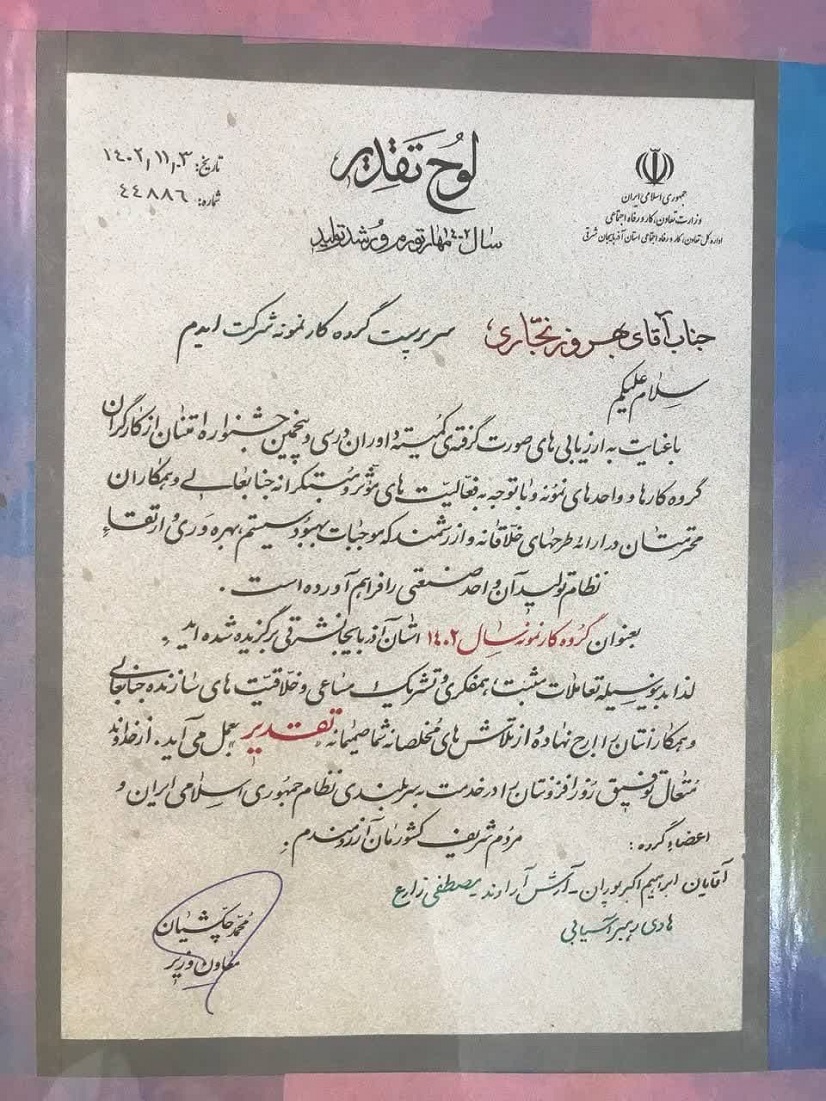 جمهوری اسلامی ایران
وزارت تعاون، کار و رفاه اجتماعی
اداره کل تعاون، کار و رفاه اجتماعی استان آذربایجان شرقی
لوح تقدیر
سال ۱۴۰۲ مهار تورم و رشد تولید
تاریخ: ۱۴۰۲/۱۱/۰۳
شماره: ۴۴۸۸۶
جناب آقای بهروز نجّاری؛ سرپرست گروه کار نمونه شرکت ایدم
سلام علیکم
با عنایت به ارزیابی های صورت گرفته ی کمیته داوران در سی و پنجمین جشنواره امتنان از کارگران
گروه کارها و واحدهای نمونه و با توجه به فعالیت های مؤثر و مبتکرانه جنابعالی و همکاران
محترمتان در ارائه طرحهای خلّاقانه و ارزشمند که موجبات بهبود سیستم، بهره وری و ارتقاء
نظام تولید آن واحد صنعتی را فراهم آورده است .
بعنوان گروه کار نمونه سال ۱۴۰۲ استان آذربایجانشرقی برگزیده شده اید .
لذا بدینوسیله تعاملات مثبت، همفکری و تشریک مساعی و خلّاقیت های سازنده جنابعالی
و همکارانتان را ارج نهاده و از تلاش های مخلصانه شما صمیمانه تقدیر بعمل می آید . از خداوند
متعال توفیق روز افزونتان را در خدمت به سربلندی نظام جمهوری اسلامی ایران و
مردم شریف کشورمان آرزومندم .
اعضاء گروه :
آقایان ابراهیم اکبرپوران - آرش آراوند - مصطفی زارع
هادی رهبر آسیابی
محمد چکشیان
معاون وزیر